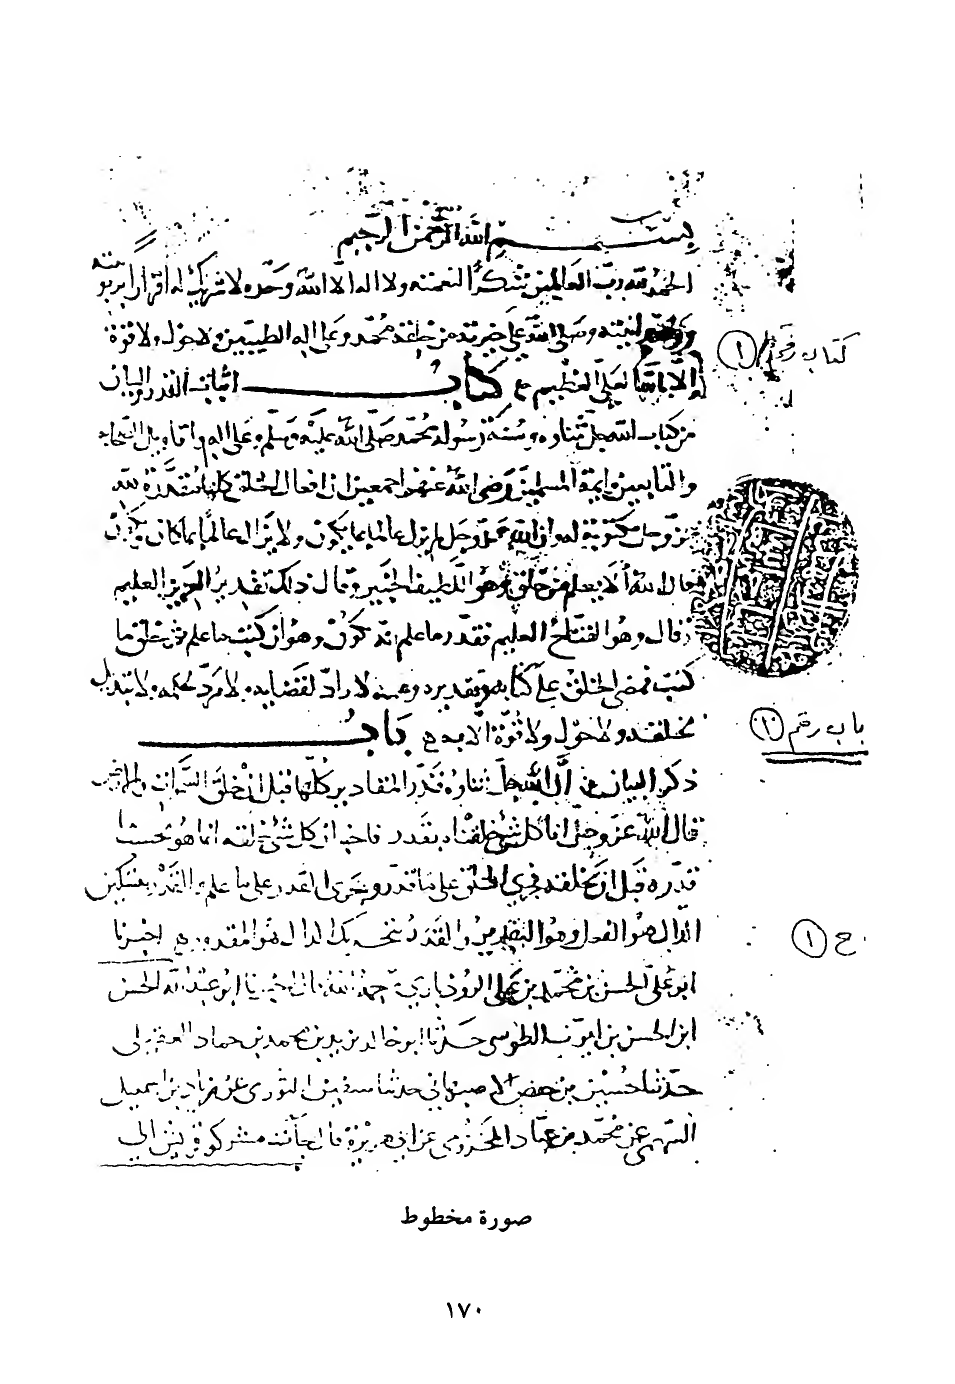 بسم الله الرحمن الرحيم
الحمد لله رب العالمين شكرا لنعمته ولا اله الا الله وحده لا شريك له اقرارا بربوبيته
وصلى الله على خيرته من خلقه محمد وعلى اله الطيبين ولا حول ولا قوة
كتاب رقم (١)
الا بالله العلي العظيم كتاب اثبات القدر والبيان
من كتاب الله جل ثناؤه وسنة رسوله محمد صلى الله عليه وسلم وعلى اله واقاويل الصحابة
والتابعين وايمة المسلمين رضي الله عنهم اجمعين ان افعال الخلق كلها مقدرة لله
عز وجل مكتوبة له وان الله عز وجل لم يزل عالما بما يكون ولا يزال عالما بما كان ويكون
قال الله الا يعلم من خلق وهو اللطيف الخبير وقال ذلك تقدير العزيز العليم
وقال وهو الفتاح العليم فقدر ما علم انه كون وهو ان كتب ما علم ثم خلق ما
كتب فمضى الخلق على كتابه وتقديره وعلمه لا راد لقضايه ولا مرد لحكمه ولا تبديل
باب رقم (١)
لخلقه ولا حول ولا قوة الا به باب
ذكر البيان ان الله جل ثناؤه قدر المقادير كلها قبل ان خلق السموات والارض
قال الله عز وجل انا كل شيء خلقناه بقدر فاخبر ان كل شيء خلقه انما هو بحسب ما
قدره قبل ان يخلقه فجرى الخلق على ما قدر وجرى القدر على ما علم والقدر بتسكين
الدال هو الفعل وهو التقدير من والقدر بتحريك الدال هو المقدور اخبرنا
ح (١)
ابو علي الحسين بن محمد بن علي الروذباري رحمه الله قال اخبرنا ابو عبد الله الحسن
ابن الحسن بن ايوب الطوسي حدثنا ابو خالد يزيد بن محمد بن حماد العقيلي
حدثنا حسين بن حفص الاصبهاني حدثنا سفين الثوري عن زياد بن اسمعيل
السهمي عن محمد بن عباد المخزومي عن ابي هريرة قال جات مشركو قريش الى
صورة مخطوط
١٧٠